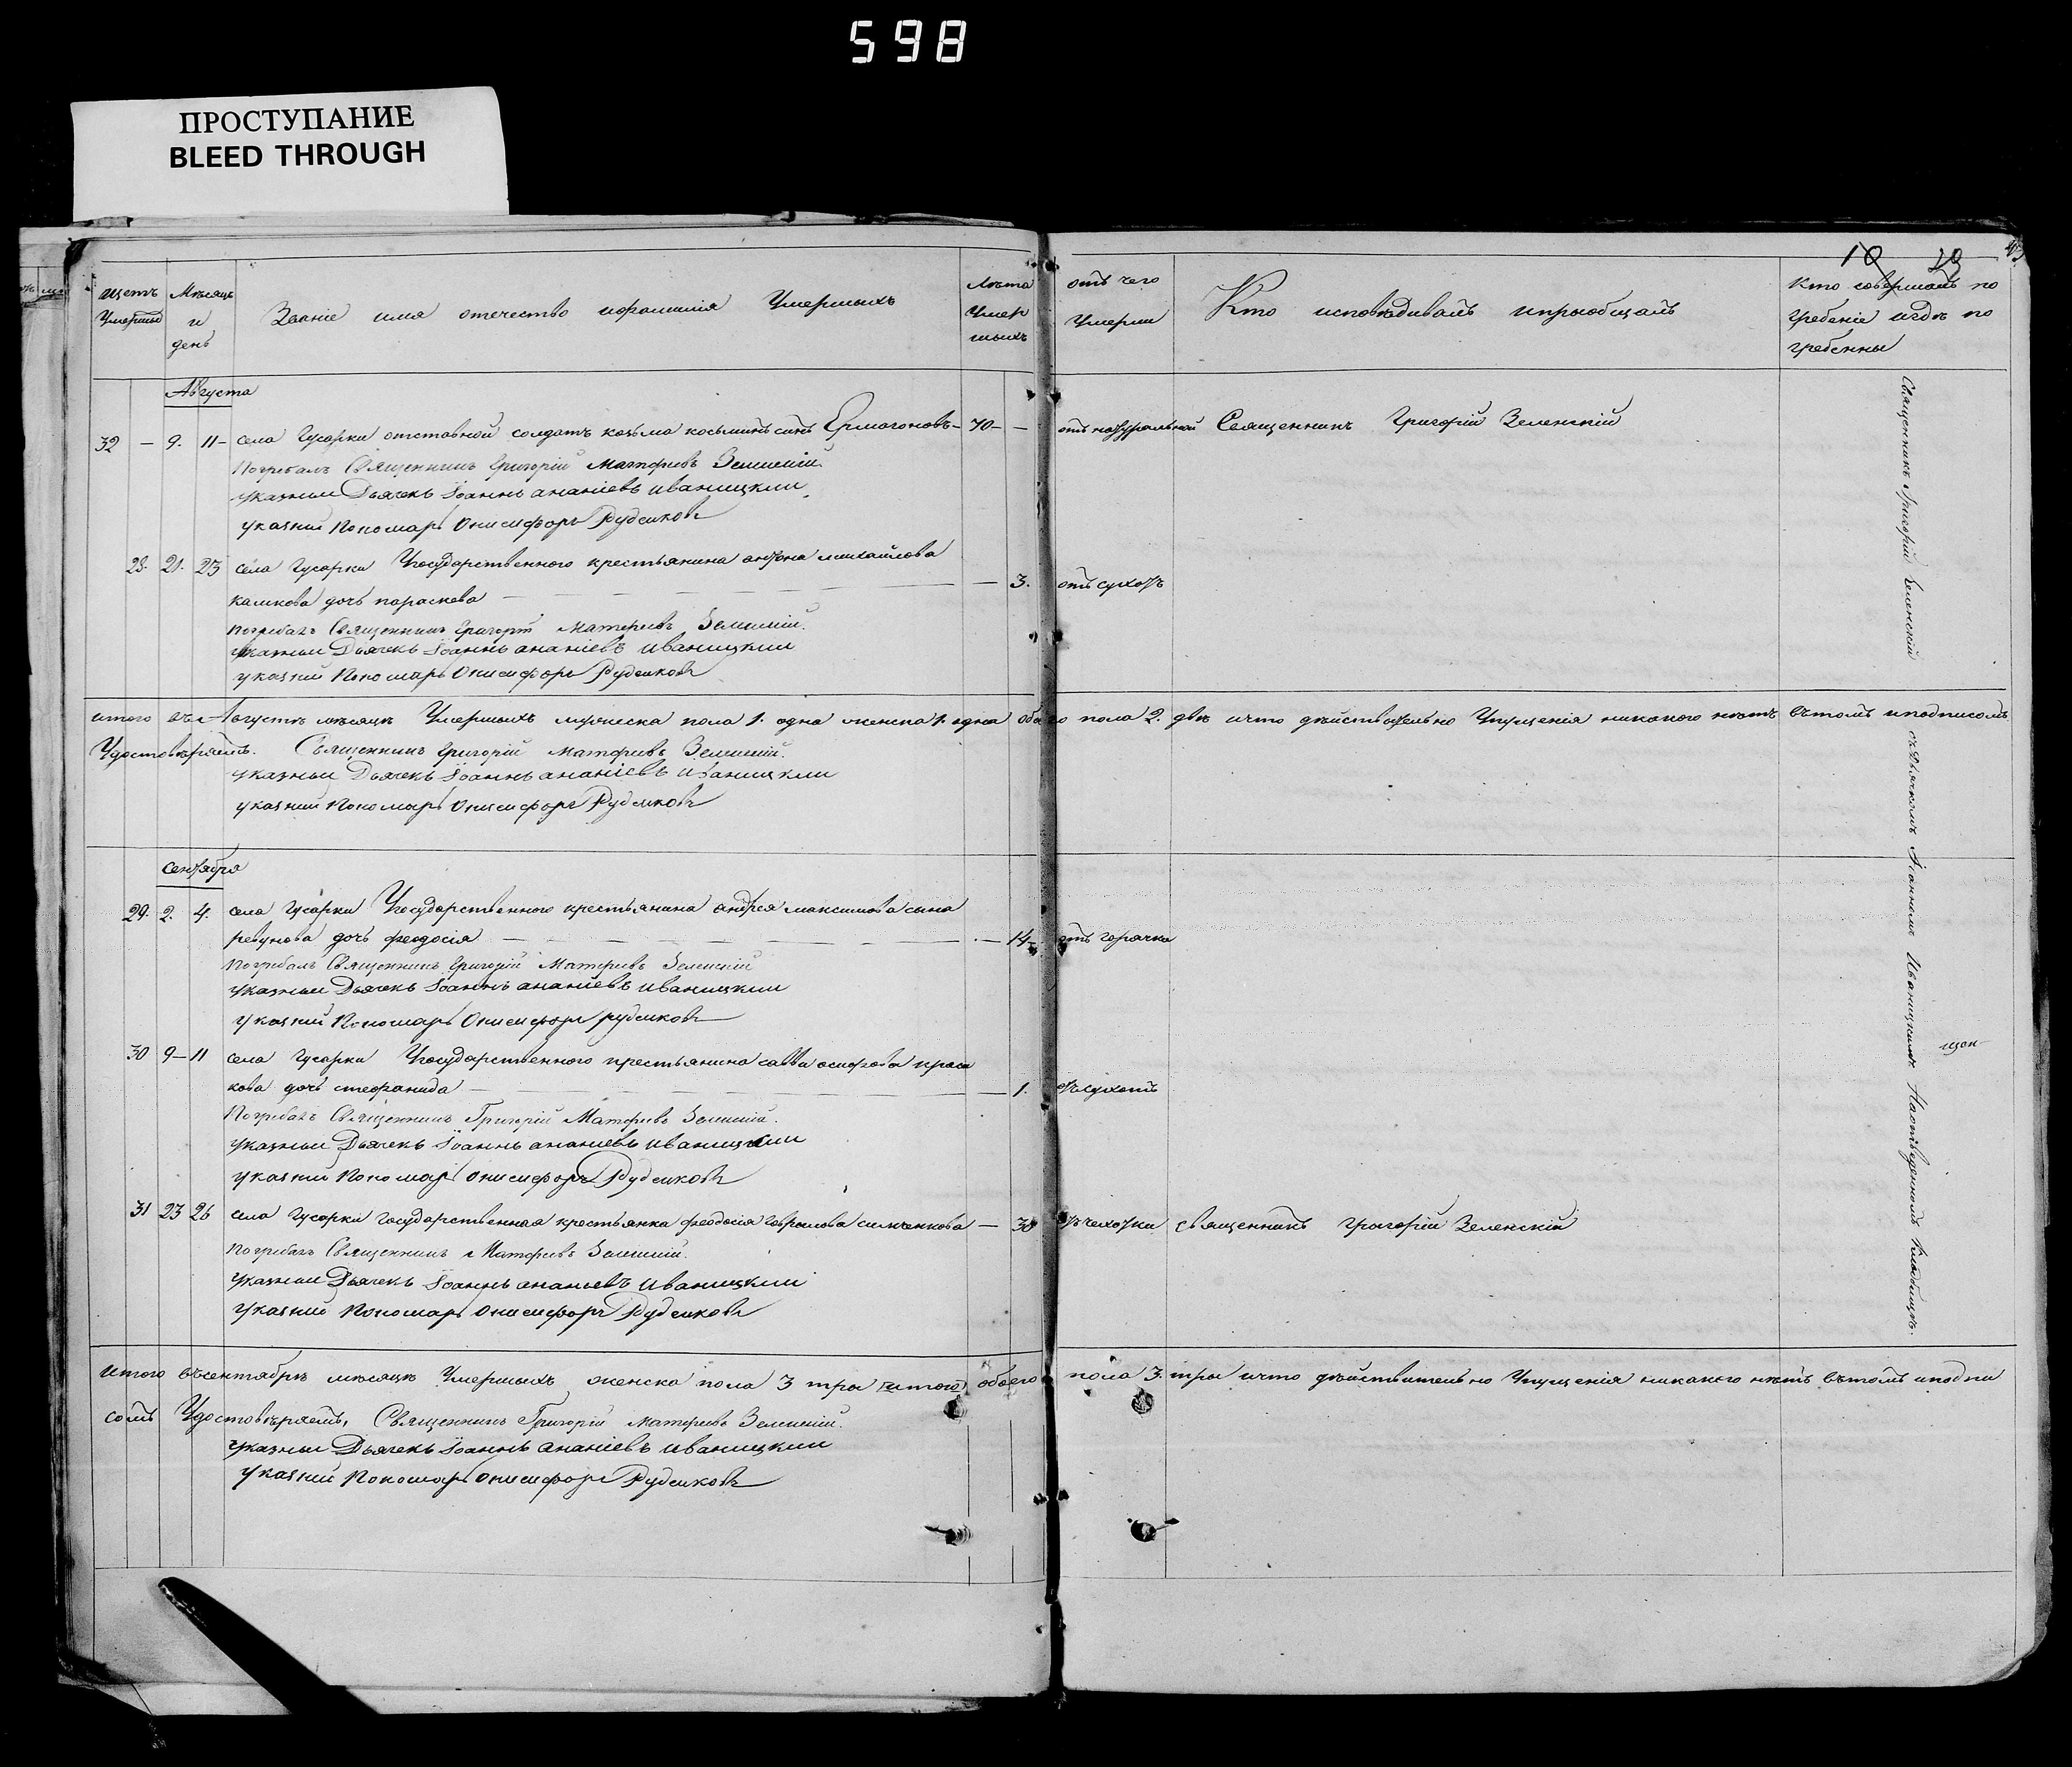 598
ПРОСТУПАНИЕ
BLEED THROUGH
щетъ Умершы
Мѣсяцъ и день
Званіе имя отечество ифамилія Умершыхъ
Лѣта Умер шыхъ
отъ чего Умерли
Кто исповѣдивалъ ипрыобщалъ
10 20
Кто совершалъ по гребеніе игдѣ по гребенны
Августа
32 — 9. 11 — села Гусарки отставной солдатъ козьма косьминъ сынъ Ермогоновъ — 70 — — отъ натуральной Священникъ Григорій Зеленскій
Погребалъ Священникъ Григорій Матфіевъ Зеленскій
указный Дьячекъ Іоаннъ ананіевъ иваницкии
указній Пономарь Онисифоръ Рудеиковъ
28. 21. 23 села Гусарки Государственного крестьянина антона михаилова
калкова дочь параскева — 3. отъ сухотъ
Погребалъ Священникъ Григорій Матфіевъ Зеленскій.
указный Дьячекъ Іоаннъ ананіевъ иваницкии
указній Пономарь Онисифоръ Рудеиковъ
итого въ Августѣ мѣсяцѣ Умершыхъ мужеска пола 1. одна женска 1. одна обаго пола 2. двѣ ичто дѣиствательно Упущенія никакого нѣтъ вътомъ иподписомъ
Удостовѣряемъ. Священникъ Григорій Матфіевъ Зеленскій.
указный Дьячекъ Іоаннъ ананіевъ иваницкии
указній Пономарь Онисифоръ Рудеиковъ
сентября
29. 2. 4. села Гусарки Государственного крестьянина андрея максимова сына
ревунова дочь феодосія — 14 — отъ горячки
Погребалъ Священникъ Григорій Матфіевъ Зеленскій
указный Дьячекъ Іоаннъ ананіевъ иваницкии
указній Пономарь Онисифоръ рудеиковъ
30 9 — 11 села Гусарки Государственного крестьянина савви осифова
кова дочь стефанида — 1. отъсухотъ
Погребалъ Священникъ Григорій Матфіевъ Зеленскій.
указный Дьячекъ Іоаннъ ананіевъ иваницкии
указній Пономарь онисифоръ Рудеиковъ
31 23 26 села Гусарки государственная крестьянка феодосія гаврилова — 30 отъ чехотки священникъ григорій Зеленскій
Погребалъ Священникъ Матфіевъ Зеленскій.
указный Дьячекъ Іоаннъ ананьевъ иваницкии
указній Пономарь онисифоръ Рудеиковъ
итого въсентябрѣ мѣсяцѣ Умершыхъ женска пола 3 тры итого обоего пола 3. тры ичто дѣиствительно Упущенія никакого нѣтъ вътомъ иподпи
сомъ Удостовѣряемъ. Священникъ Григорій Матфіевъ Зеленскій.
указный Дьячекъ Іоаннъ ананіевъ иваницкии
указній Пономарь онисифоръ Рудеиковъ
Священникъ Григорій Зеленскій съДьячкомъ Іоанномъ Иваницкимъ Наотведенномъ Кладбищѣ.